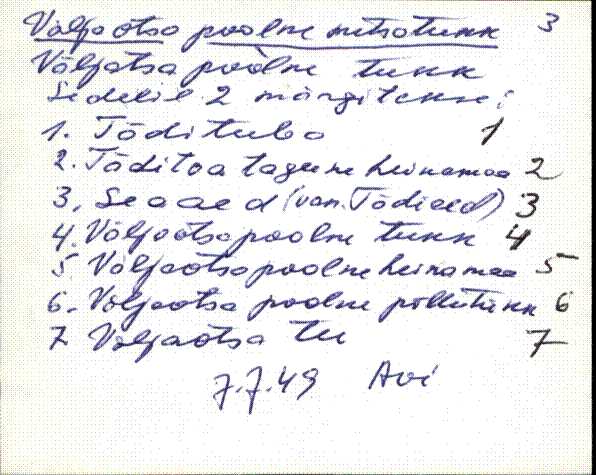 Väljaotsa poolne metsatukk 3
Väljatsa poolne tukk
Sedelil 2 märgitakse:
1. Täditubo 1
2. Täditoa tagune heinamaa 2
3. Seaaed (van. Tädiaed) 3
4. Väljaotsapoolne tukk 4
5. Väljaotsapoolne heinamaa 5
6. Väljaotsa poolne põllutükk 6
7 Väljaotsa tee 7
7.7.49 Avi